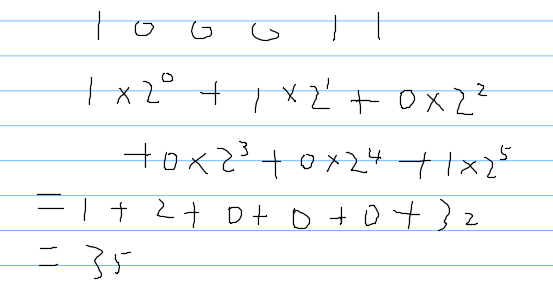 1 0 0 0 1 1
1 × 2⁰ + 1 × 2¹ + 0 × 2²
+ 0 × 2³ + 0 × 2⁴ + 1 × 2⁵
= 1 + 2 + 0 + 0 + 0 + 32
= 35